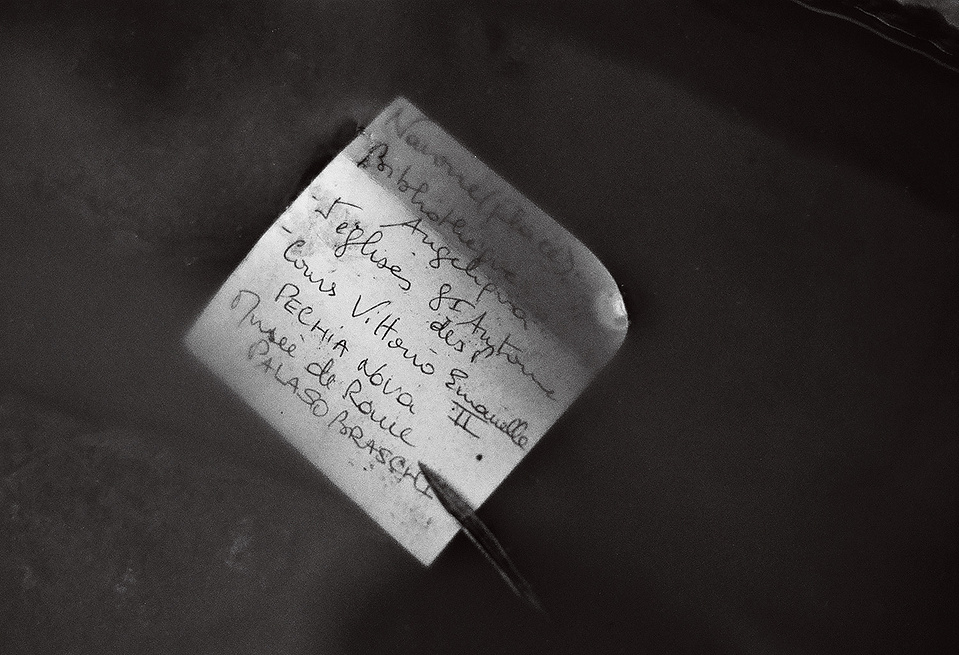 Navone (place).
Bibliothèque
Angeliqua
- l'églises St Antoine
des P
- Cours Vittorio Emanuelle
II
PECHIA NOVA
Musée de Rome
PALASO BRASCHI